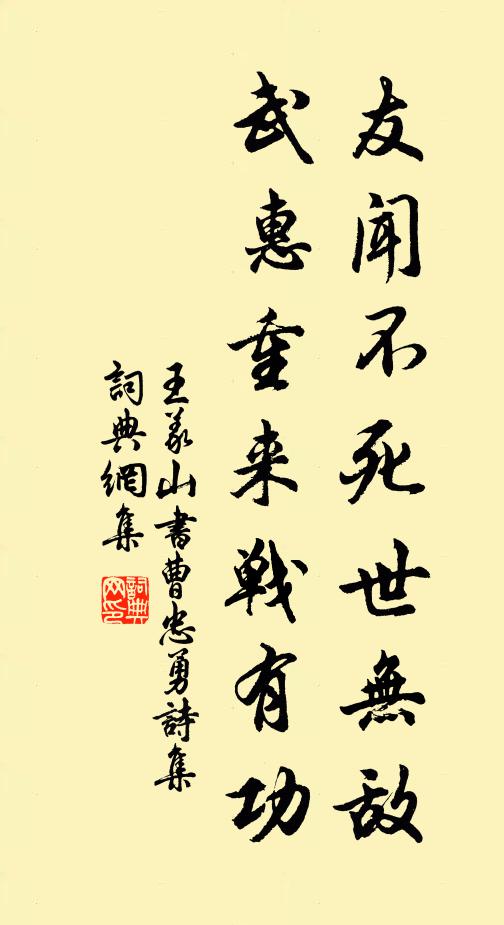 友聞不死世無敵
武惠重来戰有功
王義山書曹忠勇詩集
詞典網集
詞典
网印